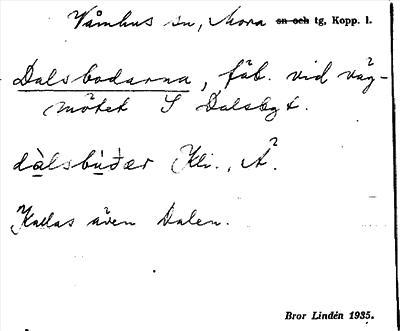 Våmhus sn, Mora sn och tg, Kopp. l.
Dalsbodarna, fäb. vid väg-
mötet S Dalsbyt.
dàlsbùðær Kli., A².
Kallas även Dalen.
Bror Lindén 1935.